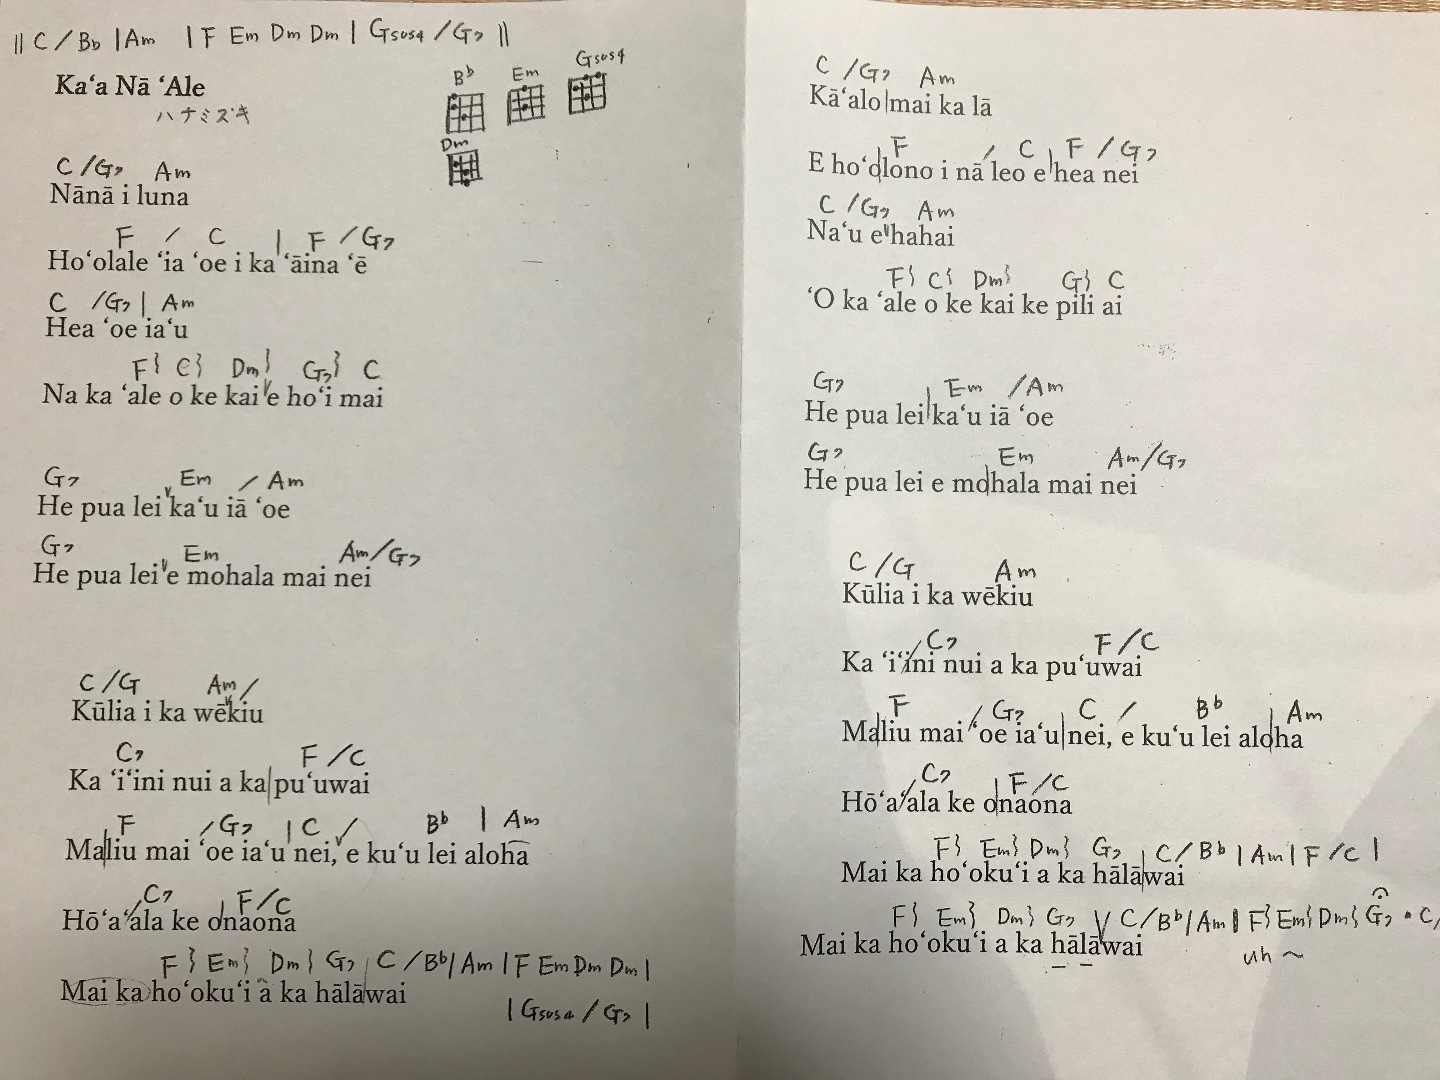 || C / Bb | Am | F Em Dm Dm | Gsus4 / G7 ||
Ka‘a Nā ‘Ale
ハナミズキ
Bb Em Gsus4
Dm
C / G7 Am
Nānā i luna
F / C | F / G7
Ho‘olale ‘ia ‘oe i ka ‘āina ‘ē
C / G7 | Am
Hea ‘oe ia‘u
F } C } Dm } G7 } C
Na ka ‘ale o ke kai e ho‘i mai
G7 Em / Am
He pua lei ka‘u iā ‘oe
G7 Em Am / G7
He pua lei e mohala mai nei
C / G Am /
Kūlia i ka wēkiu
C7 F / C
Ka ‘i‘ini nui a ka pu‘uwai
F / G7 | C / Bb | Am
Maliu mai ‘oe ia‘u nei, e ku‘u lei aloha
C7 F / C
Hō‘a‘ala ke onaona
F } Em } Dm } G7 | C / Bb | Am | F Em Dm Dm |
Mai ka ho‘oku‘i a ka hālāwai
| Gsus4 / G7 |
C / G7 Am
Kā‘alo mai ka lā
F / C | F / G7
E ho‘olono i nā leo e hea nei
C / G7 Am
Na‘u e hahai
F } C } Dm } G } C
‘O ka ‘ale o ke kai ke pili ai
G7 | Em / Am
He pua lei ka‘u iā ‘oe
G7 Em Am / G7
He pua lei e mohala mai nei
C / G Am
Kūlia i ka wēkiu
/ C7 F / C
Ka ‘i‘ini nui a ka pu‘uwai
F / G7 C / Bb | Am
Maliu mai ‘oe ia‘u nei, e ku‘u lei aloha
/ C7 | F / C
Hō‘a‘ala ke onaona
F } Em } Dm } G7 | C / Bb | Am | F / C |
Mai ka ho‘oku‘i a ka hālāwai
F } Em } Dm } G7 C / Bb | Am | F } Em } Dm } G7 • C /
Mai ka ho‘oku‘i a ka hālāwai
uh ～